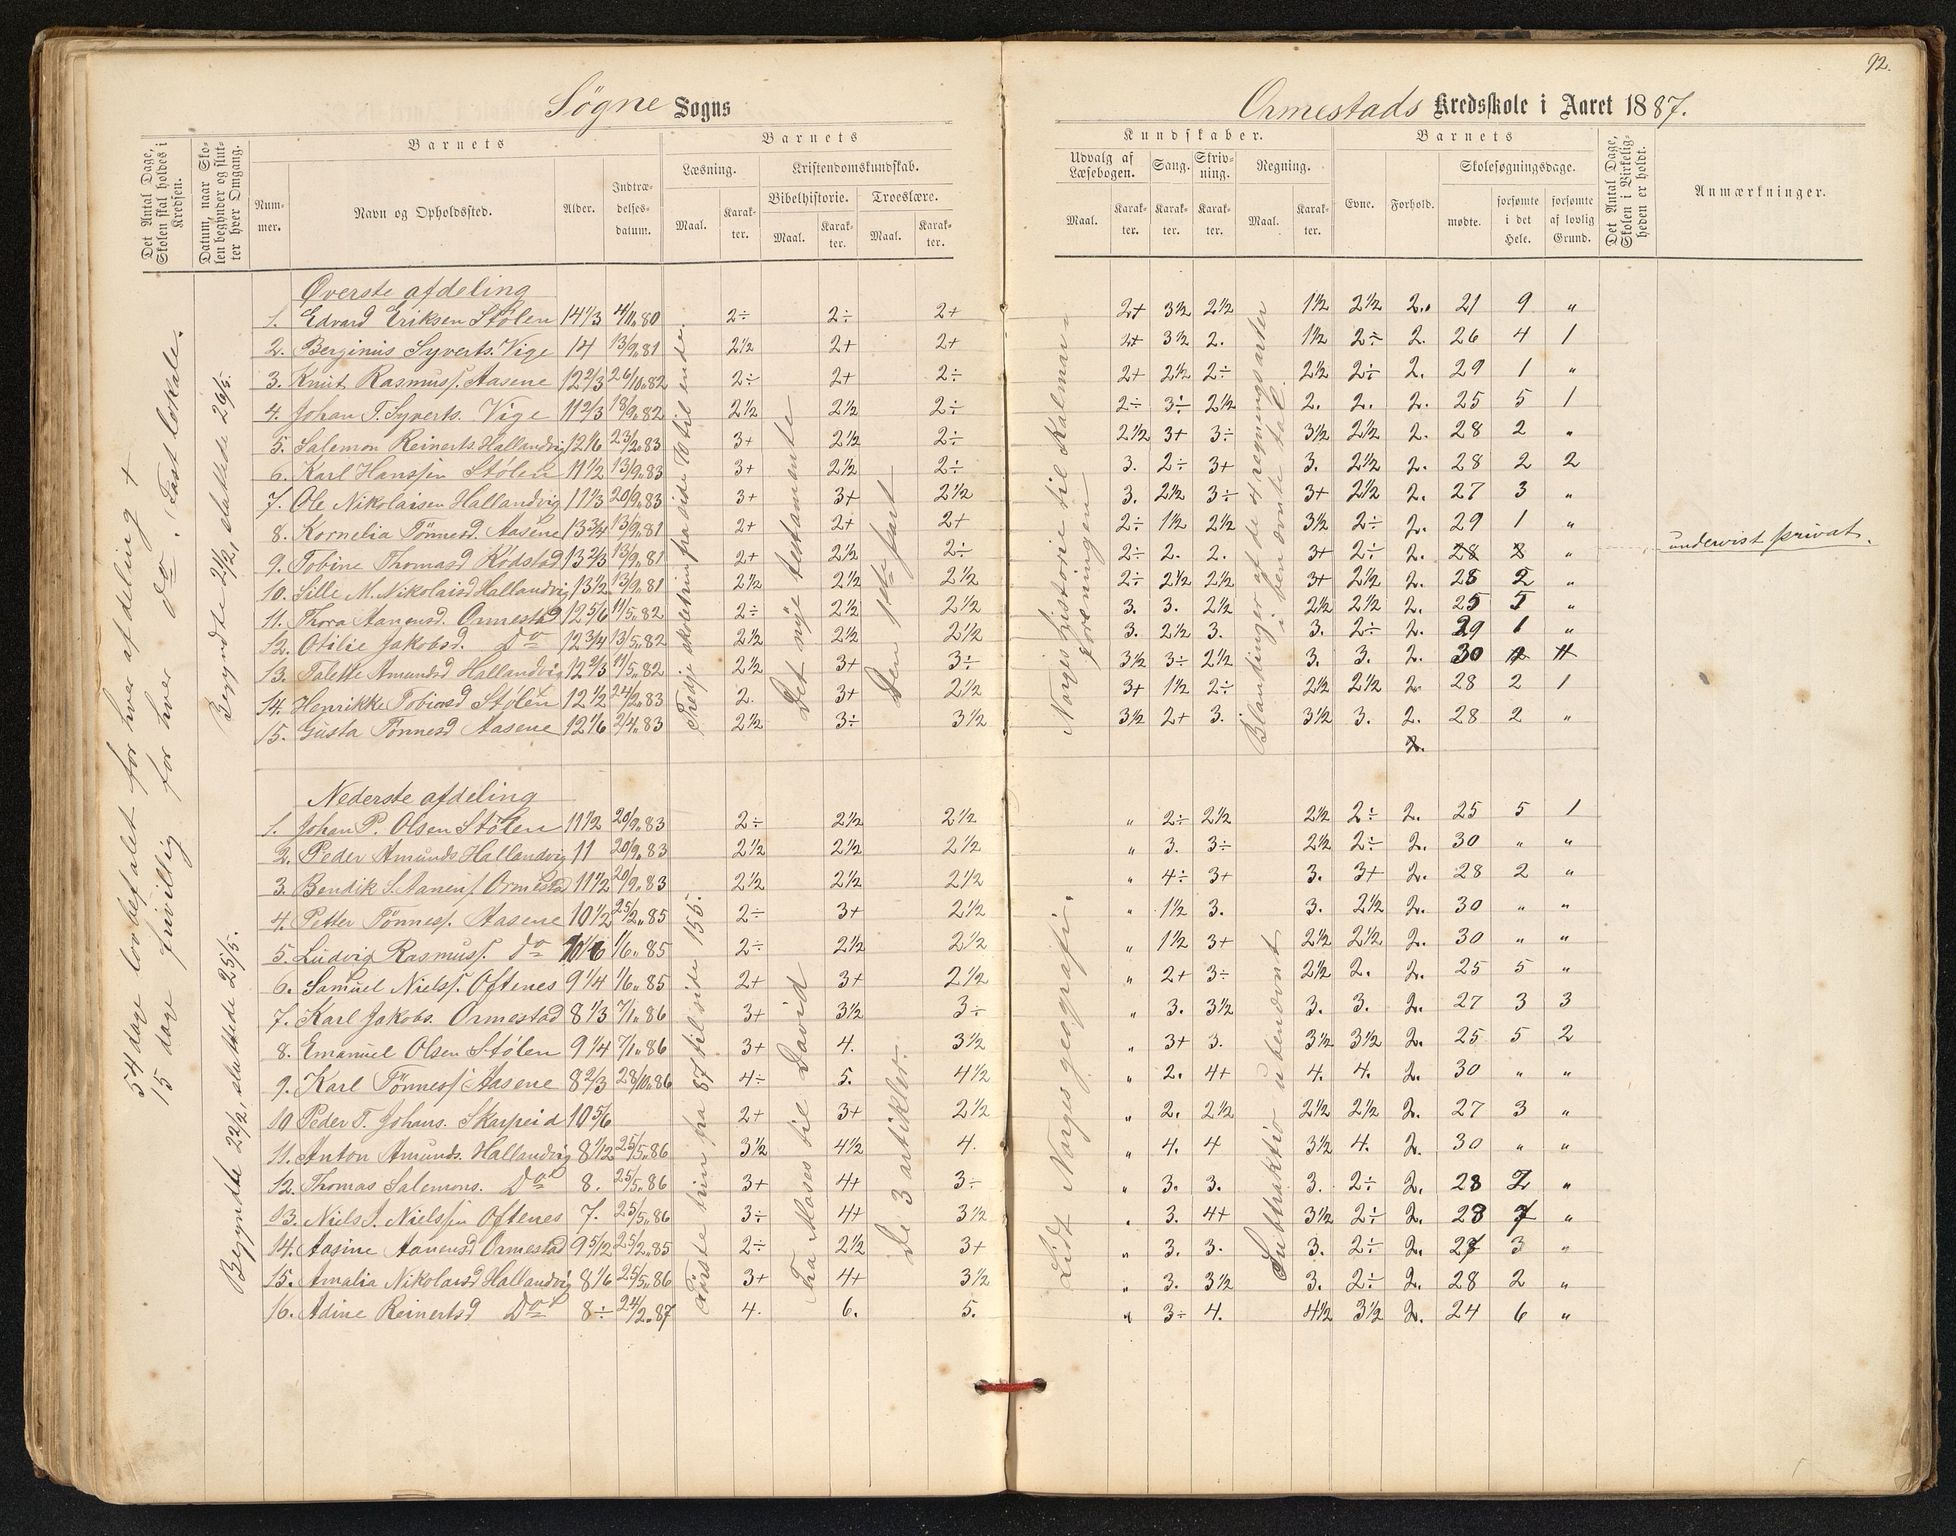 92.
Søgne Sogns
Ormestads Kredsskole i Aaret 1887.
Det Antal Dage, Skolen skal holdes i Kredsen.
Datum, naar Skolen begynder og slutter hver Omgang.
Barnets
Nummer.
Navn og Opholdssted.
Alder.
Indtrædelsesdatum.
Barnets
Læsning.
Kristendomskundskab.
Maal.
Karakter.
Bibelhistorie.
Troeslære.
Maal.
Karakter.
Maal.
Karakter.
Kundskaber.
Udvalg af Læsebogen.
Sang.
Skrivning.
Regning.
Maal.
Karakter.
Karakter.
Karakter.
Maal.
Karakter.
Barnets
Evne.
Forhold.
Skolesøgningsdage.
mødte.
forsømte i det Hele.
forsømte af lovlig Grund.
Det Antal Dage, Skolen i Virkeligheden er holdt.
Anmærkninger.
54 dage lovbefalet for hver afdeling +
15 dage frivillig for hver do. (Fast lokale.
Begyndte 21/2, sluttede 26/5.
Begyndte 22/2, sluttede 25/5.
Øverste afdeling
1. Edvard Eriksen Stølen 14 1/3 4/11.80 2÷ 2÷ 2+ 2+ 3½ 2½ 1½ 2½ 2. 21 9 "
2. Berginus Syverts. Vige 14 13/9.81 2½ 2+ 2+ 2+ 3½ 2. 1½ 2÷ 2. 26 4 1
3. Knut Rasmuss. Aasene 12 2/3 26/10.82 2÷ 2+ 2÷ 2+ 2½ 2÷ 2½ 2÷ 2. 29 1 "
4. Johan T. Syverts. Vige 11 2/3 18/9.82 2½ 2½ 2÷ 2÷ 3÷ 2½ 2. 2. 2. 25 5 1
5. Salemon Reinerts. Hallandvig 12 1/6 23/2.83 3+ 2½ 2÷ 2½ 3+ 3÷ 3½ 2½ 2. 28 2 "
6. Karl Hanssen Stølen 11 1/2 13/9.83 3+ 2½ 2÷ 3. 2÷ 3+ 3. 2½ 2. 28 2 2
7. Ole Nikolaisen Hallandvig 11 1/3 20/9.83 3+ 3+ 2½ 3. 2½ 3÷ 3+ 2½ 2. 27 3 "
8. Kornelia Tønnesd. Aasene 13 3/4 13/9.81 2+ 2+ 2+ 2÷ 1½ 2½ 3½ 2÷ 2. 29 1 "
9. Tobine Thomasd. Rødstad 13 2/3 13/9.81 2+ 2½ 2÷ 2÷ 2. 2. 3+ 2÷ 2. "  undervist privat.
10. Sille M. Nikolaisd Hallandvig 13 1/2 13/9.81 2½ 2½ 2½ 2÷ 2½ 2½ 3+ 2½ 2. 28 2 "
11. Thora Aanensd. Ormestad 12 5/6 11/5.82 2÷ 2½ 2½ 3. 3. 2½ 2½ 2½ 2. 25 5 "
12. Otilie Jakobsd. Do 12 3/4 13/5.82 2½ 2½ 2½ 3. 2½ 3. 3. 2÷ 2. 29 1 "
13. Talette Amundsd Hallandvig 12 2/3 11/5.82 2½ 3+ 3÷ 3½ 3÷ 2½ 3. 3. 2. 30
14. Henrikke Tobiasd Stølen 12 1/2 24/2.83 2. 3+ 2½ 3+ 1½ 2÷ 2½ 2½ 2. 28 2 1
15. Gusta Tønnesd Aasene 12 1/6 2/4.83 2½ 3÷ 3½ 3½ 2+ 3. 3½ 3. 2. 28 2 "
2.
Tredje skoletrin fra side 70 til ende.
Det nye testamente
Den 1ste part
Norges historie til Kalmarforeningen
Blandinger af de 4 regningsarter i benævnte tal.
Nederste afdeling
1. Johan P. Olsen Stølen 11 1/2 20/9.83 2÷ 2½ 2½ " 2÷ 2½ 2½ 2÷ 2. 25 5 1
2. Peder Amunds Hallandvig 11 20/9.83 2½ 2½ 2½ " 3. 3÷ 2½ 2÷ 2. 30 " "
3. Bendik S. Aanens. Ormestad 11 1/2 20/9.83 2½ 2½ 2½ " 4÷ 3+ 3. 3+ 2. 28 2 "
4. Petter Tønness. Aasene 10 1/2 25/2.85 2÷ 3+ 2½ " 1½ 3. 3. 2½ 2. 30 " "
5. Ludvig Rasmuss. Do 10 1/6 1/6.85 2÷ 2½ 2½ " 1½ 3+ 2½ 2½ 2. 30 " "
6. Samuel Niels. Oftenes 9 1/4 1/6.85 2+ 3+ 2½ " 2+ 3÷ 2½ 2. 2. 25 5 "
7. Karl Jakobs. Ormestad 8 1/3 7/1.86 3+ 3½ 3÷ " 3. 3½ 3. 3. 2. 27 3 3
8. Emanuel Olsen Stølen 9 1/4 7/1.86 3+ 4. 3½ " 3+ 3. 3½ 3½ 2. 25 5 2
9. Karl Tønness. Aasene 8 2/3 28/10.86 4÷ 5. 4½ " 2. 4+ 4. 4. 2. 30 " "
10 Peder T. Johans. Skarpeid 10 5/6 2+ 3+ 2½ " 2. 2½ 2½ 2½ 2. 27 3 "
11. Anton Amunds. Hallandvig 8 1/12 25/5.86 3½ 4½ 4. " 4. 4 3½ 4. 2. 30 " "
12. Thomas Salemons. Do 8. 25/5.86 3+ 4+ 3÷ " 3. 3. 3. 2÷ 2. 28 2 "
13. Niels J. Nielssen Oftenes 7. 25/5.86 3÷ 4+ 3½ " 3. 4+ 3½ 2÷ 2. 23 7 "
14. Aasine Aanensd Ormestad 9 5/12 25/2.85 2÷ 2½ 3+ " 3. 3. 3. 2÷ 2. 27 3 "
15. Amalia Nikolaisd Hallandvig 8 1/6 25/5.86 3+ 4+ 3½ " 3. 3½ 3. 2÷ 2. 28 2 "
16. Adine Reinertsd Do 8÷ 24/2.87 4. 6. 5. " 3÷ 4. 4½ 3½ 2. 24 6 "
Første trin fra 87 til side 155.
Fra Moses til David
De 3 artikler.
Lidt Norges geografi.
Subtraktion ubenævnt